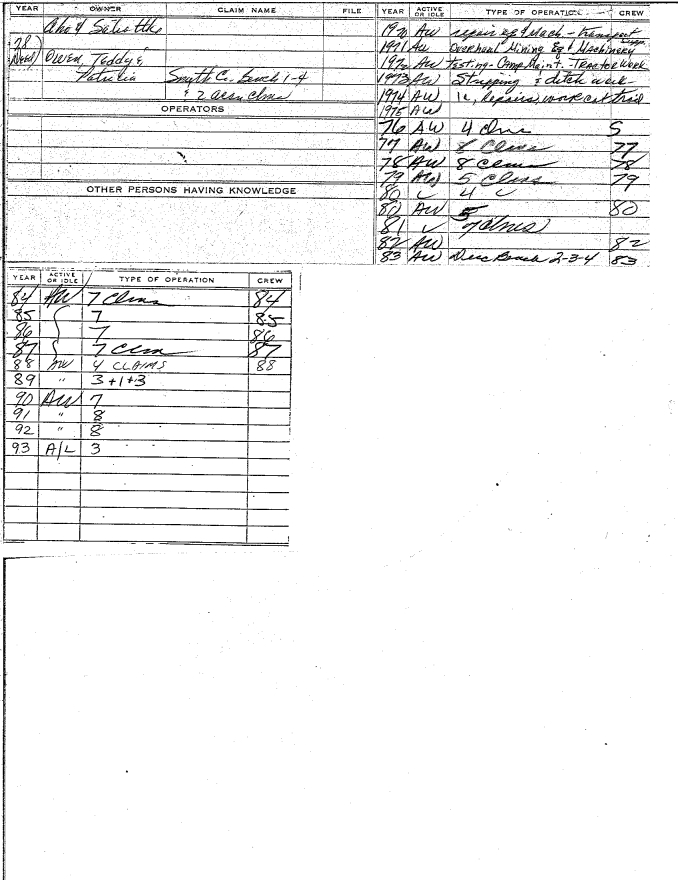 YEAR OWNER CLAIM NAME FILE
Aho & 
78
Deed) Owen, Teddy &
Patricia Smyth C. bench 1-4
& 2 assn clms
OPERATORS
OTHER PERSONS HAVING KNOWLEDGE
YEAR ACTIVE OR IDLE TYPE OF OPERATION CREW
1970 AW repair eq & Mach. - transport
1971 AW Overhaul Mining Eq & Machinery
1972 AW testing - Camp Maint. - TRACTOR WORK
1973 AW Stripping & ditch work
1974 AW Repairs, work cat trail
1975 AW
76 AW 4 clms 5
77 AW 8 Clms 77
78 AW 8 Clms 78
79 AW 5 Clms 79
80 ✓ 4 ✓
80 AW 5 80
81 ✓ 7 clms)
82 AW 82
83 AW Disc Bench 2-3-4 83
YEAR ACTIVE OR IDLE TYPE OF OPERATION CREW
84 AW 7 Clms 84
85 7 85
86 7 86
87 7 Clm 87
88 AW 4 CLAIMS 88
89 " 3+1+3
90 AW 7
91 " 8
92 " 8
93 A/L 3